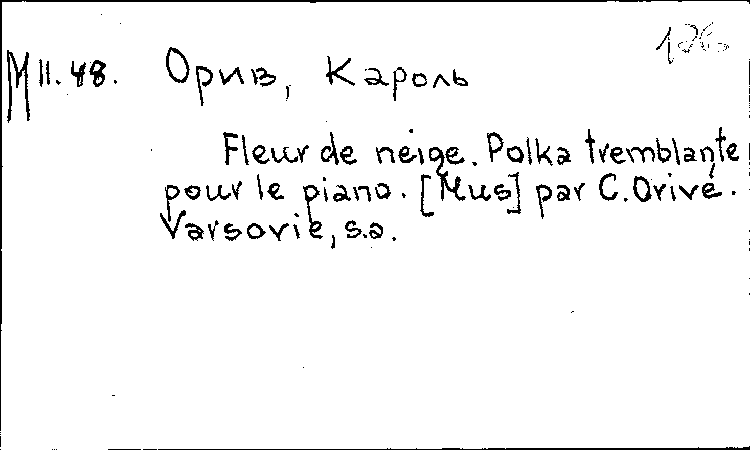 М II.48. Орив, Кароль
Fleur de neige. Polka tremblante
pour le piano. [Mus] par C. Orivé.
Varsovie, s.a.